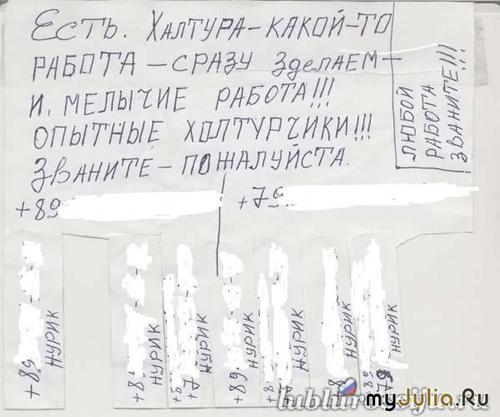 Есть. Халтура-какой-то
работа - сразу зделаем-
и. мелычие работа!!!
опытные холтурчики!!!
Званите - пожалуйста.
любой
работа
званите!!!
+89
+79
+89 Нурик
+8 Нурик
+8 +7 Нурик
+89 Нурик
+8 Нурик
8 Нурик
+89 +79 Нурик
myJulia.Ru